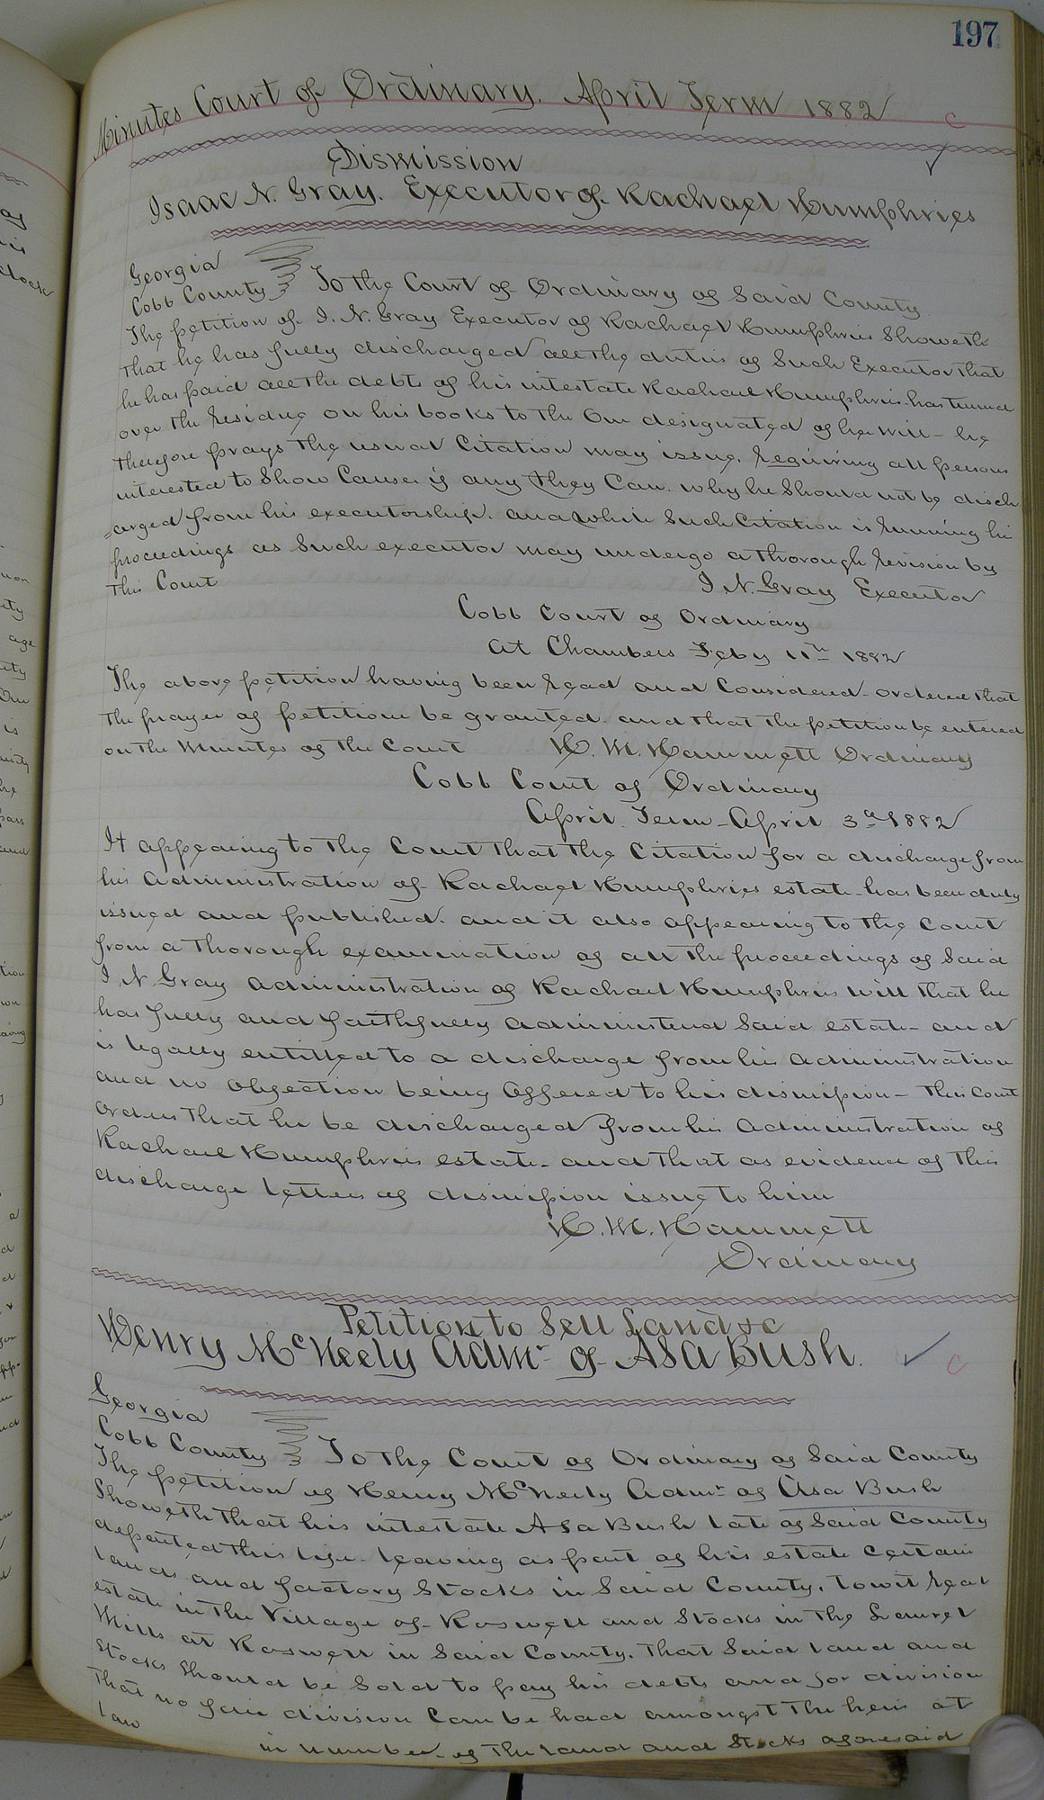 197
Minutes Court of Ordinary. April Term 1882
c
Dismission
Isaac N. Gray. Executor of Rachael Humphries
Georgia
Cobb County To the Court of Ordinary of Said County
The petition of I. N. Gray Executor of Rachael Humphries Showeth
that he has fully discharged all the duties of Such Executor that
he has paid all the debts of his intestate Rachael Humphries. has turned
over the residue on his books to the One designated of her will - he
therefore prays the usual Citation may issue. requiring all persons
interested to Show Cause if any they Can. why he Should not be disch
=arged from his executorship. and while Such Citation is running his
proceedings as Such executor may undergo a thorough revision by
this Court I. N. Gray Executor
Cobb Court of Ordinary
At Chambers Feby 11th 1882
The above petition having been read and Considered - ordered that
the prayer of petition be granted. and that the petition be entered
on the Minutes of the Court H. M. Hammett Ordinary
Cobb Court of Ordinary
April Term - April 3d 1882
It appearing to the Court that the Citation for a discharge from
his Administration of Rachael Humphries estate - has been duly
issued and published. and it also appearing to the Court
from a thorough examination of all the proceedings of Said
I N Gray Administration of Rachael Humphries will that he
has fully and faithfully Administered Said estate - and
is legally entitled to a discharge from his Administration
and no objection being offered to his dismission - this Court
orders that he be discharged from his Administration of
Rachael Humphries estate - and that as evidence of this
discharge letters of dismission issue to him
H. M. Hammett
Ordinary
Petition to Sell Land &c
Henry McNeely Admr of Asa Bush.
c
Georgia
Cobb County To the Court of Ordinary of Said County
The petition of Henry McNeely Admr of Asa Bush
Showeth that his intestate Asa Bush late of Said County
departed this life - leaving as part of his estate Certain
lands and factory Stocks in Said County. towit real
estate in the Village of Roswell and Stocks in the Laurel
Mills at Roswell in Said County. that Said land and
Stocks Should be Sold to pay his debts and for division
that no fair division Can be had amongst the heirs at
law in number - of the land and Stocks aforesaid